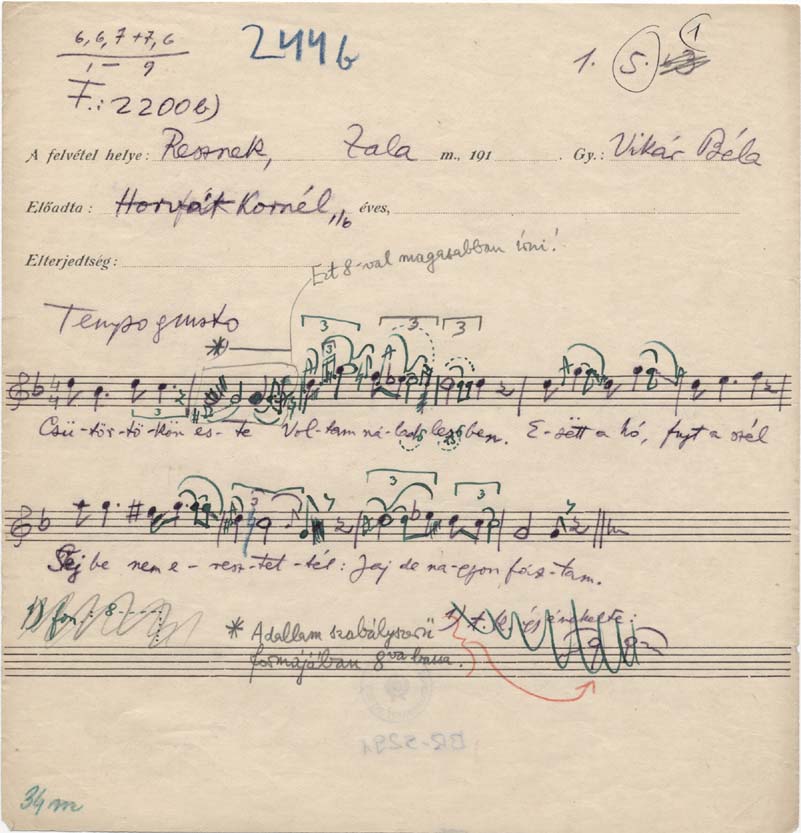 6, 6, 7 + 7, 6
1 – 9
F.: 2200b)
244b
1. 5. 1
A felvétel helye: Resznek, Zala m., 191 Gy.: Vikár Béla
Előadta: Horvát Kornél, éves,
Elterjedtség:
Ezt 8-val magasabban írni!
Tempo giusto
*
3 3 3 3
3
Csü-tör-tö-kön es-te Vol-tam ná-lad les-ben. E-sett a hó, fujt a szél
3 3 3
Sej be nem e-resz-tet-tél: Jaj de na-gyon fáz-tam.
* A dallam szabályszerű
formájában 8va bassa.
BR-5291
34 m